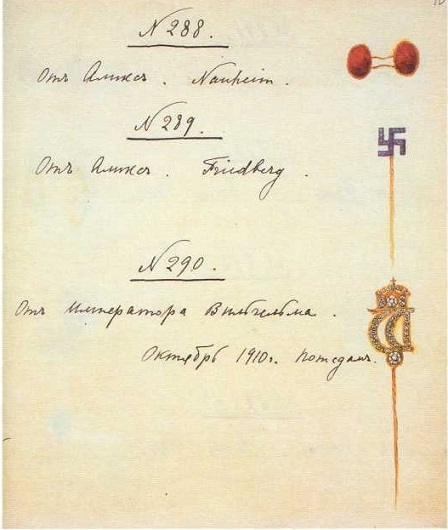 N 288.
Отъ Аликсъ. Nauheim.
N 289.
Отъ Аликсъ. Friedberg.
N 290.
Отъ Императора Вильгельма.
Октябрь 1910г. Потсдамъ.